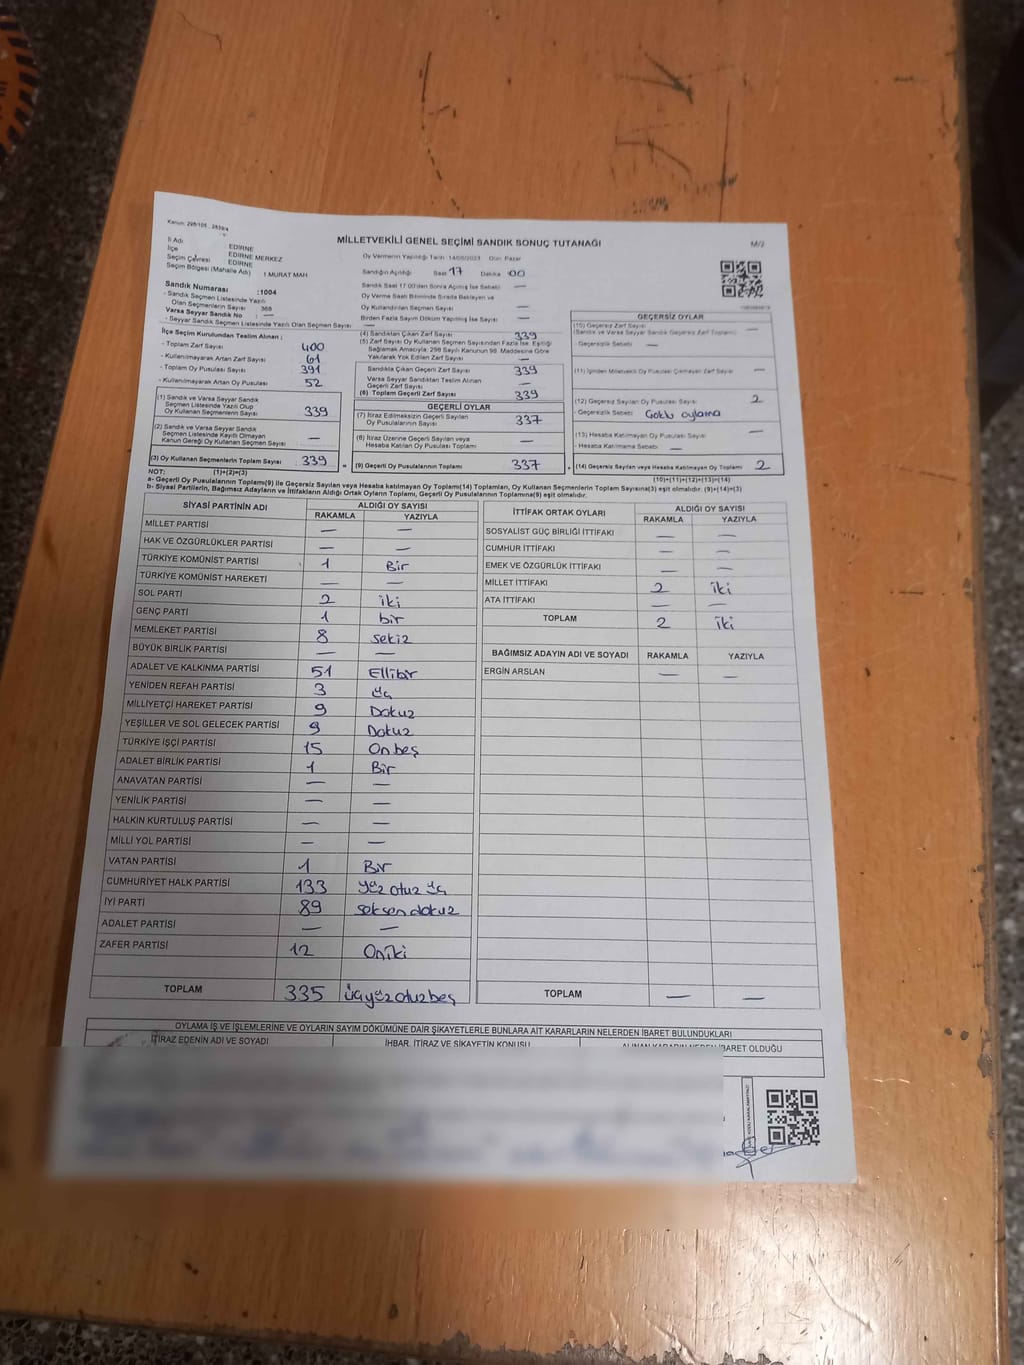 Kanun: 298/105
MİLLETVEKİLİ GENEL SEÇİMİ SANDIK SONUÇ TUTANAĞI
M/2
İli Adı EDİRNE
İlçe EDİRNE MERKEZ
Seçim Çevresi EDİRNE
Seçim Bölgesi (Mahalle Adı) I.MURAT MAH
Sandık Numarası :1004
- Sandık Seçmen Listesinde Yazılı
Olan Seçmenlerin Sayısı 368
Varsa Seyyar Sandık No : —
- Seyyar Sandık Seçmen Listesinde Yazılı Olan Seçmen Sayısı —
Oy Vermenin Yapıldığı Tarih :14/05/2023 Gün: Pazar
Sandığın Açıldığı Saat 17 Dakika 00
Sandık Saat 17:00'dan Sonra Açılmış İse Sebebi —
Oy Verme Saati Bitiminde Sırada Bekleyen ve
Oy Kullandırılan Seçmen Sayısı —
Birden Fazla Sayım Döküm Yapılmış İse Sayısı —
İlçe Seçim Kurulundan Teslim Alınan :
- Toplam Zarf Sayısı 400
- Kullanılmayarak Artan Zarf Sayısı 61
- Toplam Oy Pusulası Sayısı 391
- Kullanılmayarak Artan Oy Pusulası 52
(1) Sandık ve Varsa Seyyar Sandık
Seçmen Listesinde Yazılı Olup
Oy Kullanan Seçmenlerin Sayısı 339
(2) Sandık ve Varsa Seyyar Sandık
Seçmen Listesinde Kayıtlı Olmayan
Kanun Gereği Oy Kullanan Seçmen Sayısı —
(3) Oy Kullanan Seçmenlerin Toplam Sayısı 339
(4) Sandıktan Çıkan Zarf Sayısı 339
(5) Zarf Sayısı Oy Kullanan Seçmen Sayısından Fazla İse, Eşitliği
Sağlamak Amacıyla; 298 Sayılı Kanunun 98. Maddesine Göre
Yakılarak Yok Edilen Zarf Sayısı —
Sandıkta Çıkan Geçerli Zarf Sayısı 339
Varsa Seyyar Sandıktan Teslim Alınan
Geçerli Zarf Sayısı —
(6) Toplam Geçerli Zarf Sayısı 339
GEÇERLİ OYLAR
(7) İtiraz Edilmeksizin Geçerli Sayılan
Oy Pusulalarının Sayısı 337
(8) İtiraz Üzerine Geçerli Sayılan veya
Hesaba Katılan Oy Pusulası Toplamı —
= (9) Geçerli Oy Pusulalarının Toplamı 337
GEÇERSİZ OYLAR
(10) Geçersiz Zarf Sayısı
(Sandık ve Varsa Seyyar Sandık Geçersiz Zarf Toplamı) —
- Geçersizlik Sebebi —
(11) İçinden Milletvekili Oy Pusulası Çıkmayan Zarf Sayısı —
(12) Geçersiz Sayılan Oy Pusulası Sayısı 2
- Geçersizlik Sebebi Çoklu oylama
(13) Hesaba Katılmayan Oy Pusulası Sayısı —
- Hesaba Katılmama Sebebi —
+ (14) Geçersiz Sayılan veya Hesaba Katılmayan Oy Toplamı 2
NOT: (1)+(2)=(3) (10)+(11)+(12)+(13)=(14)
a- Geçerli Oy Pusulalarının Toplamı(9) ile Geçersiz Sayılan veya Hesaba katılmayan Oy Toplamı(14) Toplamları, Oy Kullanan Seçmenlerin Toplam Sayısına(3) eşit olmalıdır. (9)+(14)=(3)
b- Siyasi Partilerin, Bağımsız Adayların ve İttifakların Aldığı Ortak Oyların Toplamı, Geçerli Oy Pusulalarının Toplamına(9) eşit olmalıdır.
SİYASİ PARTİNİN ADI ALDIĞI OY SAYISI
RAKAMLA YAZIYLA
MİLLET PARTİSİ — —
HAK VE ÖZGÜRLÜKLER PARTİSİ — —
TÜRKİYE KOMÜNİST PARTİSİ 1 Bir
TÜRKİYE KOMÜNİST HAREKETİ — —
SOL PARTİ 2 iki
GENÇ PARTİ 1 bir
MEMLEKET PARTİSİ 8 sekiz
BÜYÜK BİRLİK PARTİSİ — —
ADALET VE KALKINMA PARTİSİ 51 Ellibir
YENİDEN REFAH PARTİSİ 3 üç
MİLLİYETÇİ HAREKET PARTİSİ 9 Dokuz
YEŞİLLER VE SOL GELECEK PARTİSİ 9 Dokuz
TÜRKİYE İŞÇİ PARTİSİ 15 Onbeş
ADALET BİRLİK PARTİSİ 1 Bir
ANAVATAN PARTİSİ — —
YENİLİK PARTİSİ — —
HALKIN KURTULUŞ PARTİSİ — —
MİLLİ YOL PARTİSİ — —
VATAN PARTİSİ 1 Bir
CUMHURİYET HALK PARTİSİ 133 Yüz otuz üç
İYİ PARTİ 89 seksendokuz
ADALET PARTİSİ — —
ZAFER PARTİSİ 12 Oniki
TOPLAM 335 üçyüzotuzbeş
İTTİFAK ORTAK OYLARI ALDIĞI OY SAYISI
RAKAMLA YAZIYLA
SOSYALİST GÜÇ BİRLİĞİ İTTİFAKI — —
CUMHUR İTTİFAKI — —
EMEK VE ÖZGÜRLÜK İTTİFAKI — —
MİLLET İTTİFAKI 2 iki
ATA İTTİFAKI — —
TOPLAM 2 iki
BAĞIMSIZ ADAYIN ADI VE SOYADI RAKAMLA YAZIYLA
ERGİN ARSLAN — —
TOPLAM — —
OYLAMA İŞ VE İŞLEMLERİNE VE OYLARIN SAYIM DÖKÜMÜNE DAİR ŞİKAYETLERLE BUNLARA AİT KARARLARIN NELERDEN İBARET BULUNDUKLARI
İTİRAZ EDENİN ADI VE SOYADI İHBAR, İTİRAZ VE ŞİKAYETİN KONUSU ALINAN KARARIN NEDEN İBARET OLDUĞU